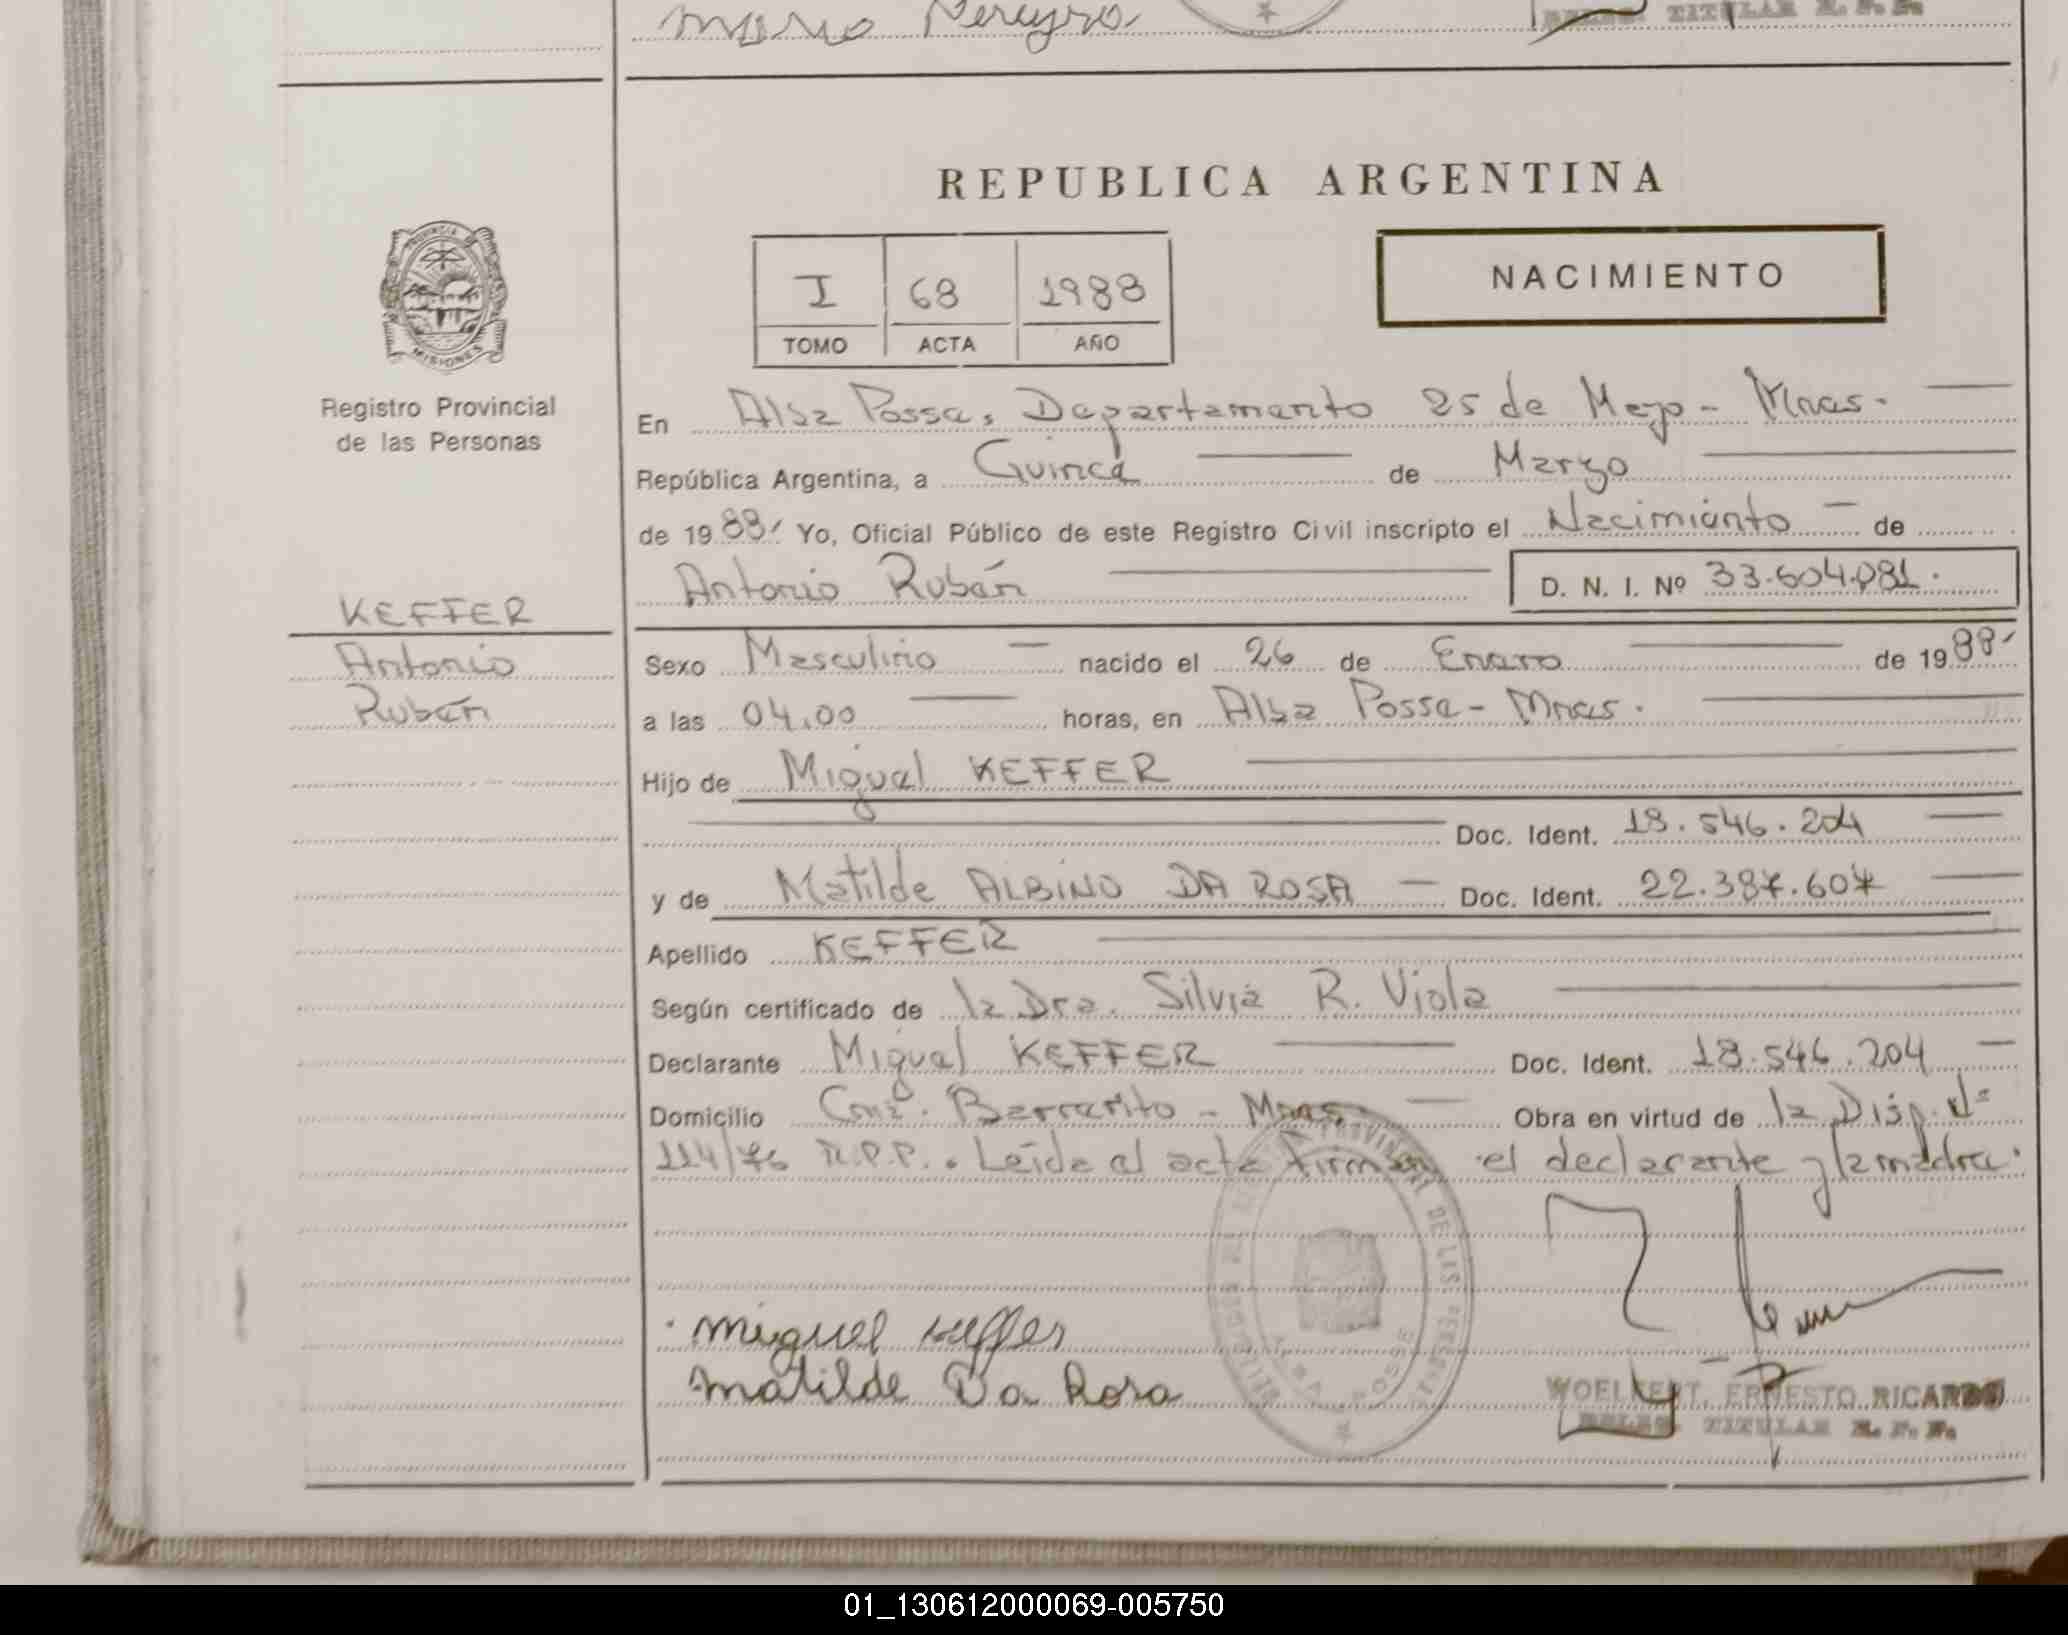 Mario Pereyra
TITULAR R. P. P.
REPUBLICA ARGENTINA
PROVINCIA DE
MISIONES
I 68 1988
TOMO ACTA AÑO
NACIMIENTO
Registro Provincial
de las Personas
En Alba Posse, Departamento 25 de Mayo - Mnes.
República Argentina, a Quince de Marzo
de 1988 Yo, Oficial Público de este Registro Civil inscripto el Nacimiento de
Antonio Rubén D. N. I. Nº 33.604.081.
KEFFER
Antonio
Rubén
Sexo Masculino nacido el 26 de Enero de 1988
a las 04,00 horas, en Alba Posse - Mnes.
Hijo de Miguel KEFFER
Doc. Ident. 18.546.204
y de Matilde ALBINO DA ROSA Doc. Ident. 22.387.607
Apellido KEFFER
Según certificado de la Dra. Silvia R. Viola
Declarante Miguel KEFFER Doc. Ident. 18.546.204
Domicilio Cnia. Barrerito - Mnes. Obra en virtud de la Disp. Nº
114/76 R.P.P.. Leída el acta firman el declarante y la madre.
Miguel Keffer
Matilde Da Rosa
ALBA POSSE
WOELFERT, ERNESTO RICARDO
DELEG. TITULAR R. P. P.
01_130612000069-005750